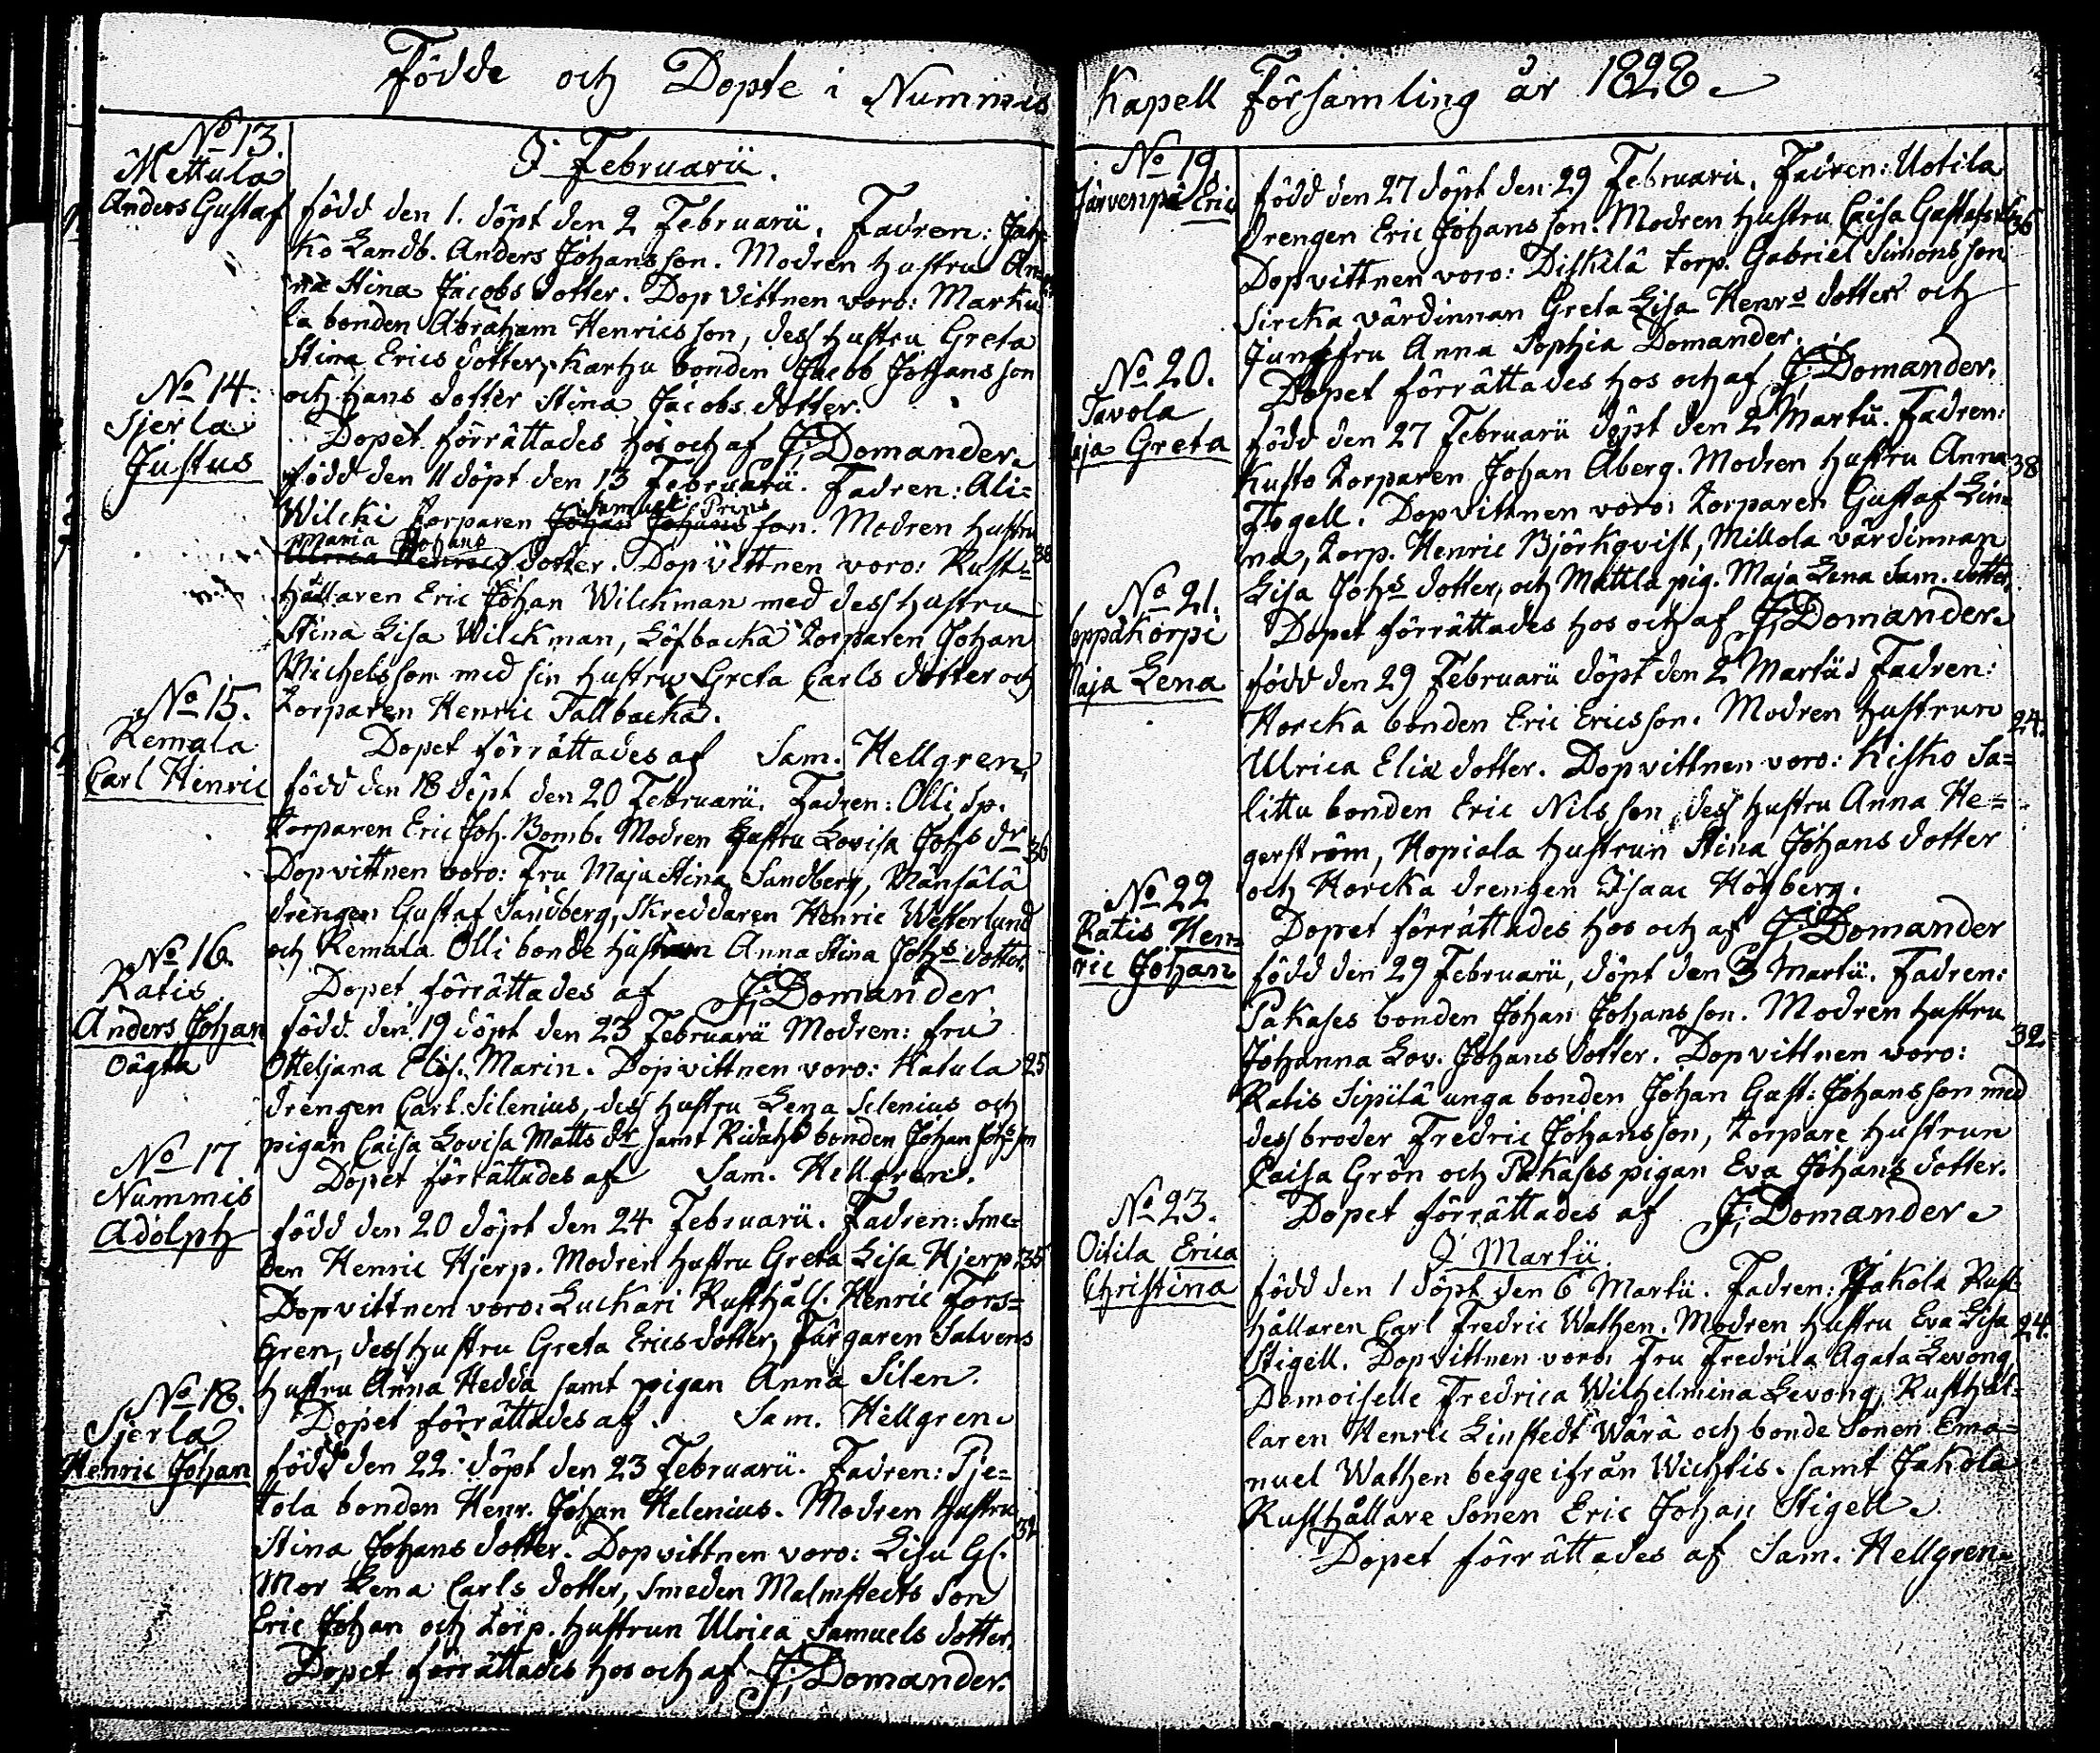 Födde och Dopte i Nummis
No 13.
Mettula
Anders Gustaf
I Februarii.
född den 1. döpt den 2 Februarii. Fadren: Jak-
ko Landb. Anders Johansson. Modren hustru An-
na Stina Jacobsdotter. Dopvittnen voro: Marku
la bonden Abraham Henricsson, dess hustru Greta
Stina Ericsdotter, Karhu bonden Jacob Johansson
och hans dotter Stina Jacobsdotter.
Dopet förrättades hos och af J. Domander.
No 14.
Sjerla
Justus
född den 11 döpt den 13 Februarii. Fadren: Ali-
Samuel Prins
Wilcki Torparen Johan Johansson. Modren hustru
Maria Johans
Ulrica Henricsdotter. Dopvittnen voro: Rust- 38
hållaren Eric Johan Wilckman med dess hustru
Stina Lisa Wilckman, Löfbacka Torparen Johan
Michelsson med sin hustru Greta Carlsdotter och
Torparen Henric Tallbacka.
Dopet förrättades af Sam. Hellgren
No 15.
Remala
Carl Henric
född den 18 döpt den 20 Februarii. Fadren: Olli sp.
Torparen Eric Joh. Bomb. Modren hustru Lovisa Johs dr 36
Dopvittnen voro: Fru Maja Stina Sandberg, Månsälä
drengen Gustaf Sandberg, Skreddaren Henric Westerlund
och Remala Olli bonde hustrun Anna Stina Johs dotter.
Dopet förrättades af J. Domander
No 16.
Ratis
Anders Johan
Oägta
född den 19 döpt den 23 Februarii Modren: fru
Otteljana Elis. Marin. Dopvittnen voro: Katula 25
drengen Carl Silenius, dess hustru Lena Silenius och
pigan Caisa Lovisa Matts dr samt Ridahl bonden Johan Johs son
Dopet förrättades af Sam. Hellgren.
No 17
Nummis
Adolph
född den 20 döpt den 24 Februarii. Fadren: Sme-
den Henric Hjerp. Modren hustru Greta Lisa Hjerp. 35
Dopvittnen voro: Luckari Rusthåll. Henric Fors-
gren, dess hustru Greta Ericsdotter, Färgaren Salvens
hustru Anna Hedda samt pigan Anna Silen.
Dopet förrättades af Sam. Hellgren
No 18.
Sjerla
Henric Johan
född den 22 döpt den 23 Februarii. Fadren: Pje-
tola bonden Henr. Johan Helenius. Modren hustru
Stina Johansdotter. Dopvittnen voro: Lisu Gl. 32
Mor Lena Carlsdotter, Smeden Malmstedts Son
Eric Johan och Torp. hustrun Ulrica Samuelsdotter.
Dopet förrättades hos och af J. Domander.
Kapell Församling år 1828
No 19
Järvenpä Eric
född den 27 döpt den 29 Februarii. Fadren: Uotila
drengen Eric Johansson. Modren hustru Caisa Gustafs dr 36
Dopvittnen voro: Diskilä Torp. Gabriel Simonsson
Sircka värdinnan Greta Lisa Henrs dotter och
Jungfru Anna Sophia Domander.
Dopet förrättades hos och af J. Domander.
No 20.
Tavola
Maja Greta
född den 27 Februarii döpt den 2 Martii. Fadren:
Kusto Torparen Johan Åberg. Modren hustru Anna 38
Flogell. Dopvittnen voro: Torparen Gustaf Lin-
na, Torp. Henric Björkqvist, Millola värdinnan
Lisa Johs dotter, och Mattla pig. Maja Lena Sam. dotter,
Dopet förrättades hos och af J. Domander
No 21.
oppäkorpi
Maja Lena
född den 29 Februarii döpt den 2 Martii. Fadren:
Horcka bonden Eric Ericsson. Modren hustrun 24.
Ulrica Eliadotter. Dopvittnen voro: Kisko Sa-
littu bonden Eric Nilsson, dess hustru Anna He-
gerström, Hopiala hustrun Stina Johansdotter
och Horcka drengen Isaac Högberg.
Dopet förrättades hos och af J. Domander
No 22
Ratis Hen-
ric Johan
född den 29 Februarii, döpt den 3 Martii. Fadren:
Pakases bonden Johan Johansson. Modren hustru
Johanna Lov. Johansdotter. Dopvittnen voro: 32
Ratis Sipilä unga bonden Johan Gust. Johansson med
dess broder Fredric Johansson, Torpare hustrun
Caisa Grön och Pakases pigan Eva Johansdotter.
Dopet förrättades af J. Domander
No 23.
Oitila Erica
Christina
I Martii
född den 1 döpt den 6 Martii. Fadren: Jakola Rust-
hållaren Carl Fredric Wathen. Modren hustru Eva Lisa 24.
Stigell. Dopvittnen voro: Fru Fredrica Agata Levong,
Demoiselle Fredrica Wilhelmina Levong, Rusthål-
laren Henric Linstedt Wärä och bonde Sonen Ema-
nuel Wathen begge ifrån Wichtis. samt Jakola
Rusthållare Sonen Eric Johan Stigell.
Dopet förrättades af Sam. Hellgren